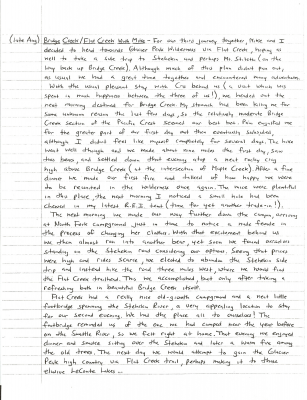 (late Aug) Bridge Creek/Flat Creek With Mike - For our third journey together, Mike and I
decided to head towards Glacier Peak Wilderness via Flat Creek, hoping as
well to take a side trip to Stehekin and perhaps Mt.
way back up Bridge Creek). Although most of this plan didn't pan out,
as usual we had a great time together and encountered many adventures.
With the usual pleasant stay with behind us (a visit which was
spent in much happiness between the three of us!), we headed out the
next morning destined for Bridge Creek. My stomach had been killing me for
some unknown reason the last few days. So the relatively moderate Bridge
Creek section of the Pacific Crest seemed our best bet. Pain engulfed me
for the greater part of our first day but then eventually subsided,
although I didn't feel like myself completely for several days. The hike
went well though and we made about nine miles the first day, saw
two bears and settled down that evening atop a rocky crag
high above Bridge Creek (at the intersection of Maple Creek). After a fine
dinner we made our first fire and talked of how happy we were
to be reunited in the wilderness once again. The mice were plentiful
in this place, the next morning I noticed a small hole had been
chewed in my latest R.E.I. tent (time for yet another trade-in!).
The next morning we made our way further down the canyon, arriving
at North Fork campground just in time to notice a nude female in
the process of changing her clothes. With that excitement behind us
we then almost ran into another bear. Soon we found ourselves
standing on the Stehekin road considering our options. Seeing that prices
were high and rides scarce, we elected to abandon the Stehekin side
trip and instead hike the road three miles west, where we would find
the Flat Creek trailhead. This we accomplished but only after taking a
refreshing bath in beautiful Bridge Creek itself.
Flat Creek had a really nice old-growth campground and a neat little
footbridge spanning the Stehekin River, a very appealing location to stay
for our second evening. We had the place all to ourselves! The
footbridge reminded us of the one we had camped near the year before
on the River, so we felt right at home. That evening we enjoyed
dinner and smokes sitting over the Stehekin and later a warm fire among
the old trees. The next day we would attempt to gain the Glacier
Peak high country via Flat Creek trail, perhaps making it to those
elusive LeConte Lakes...